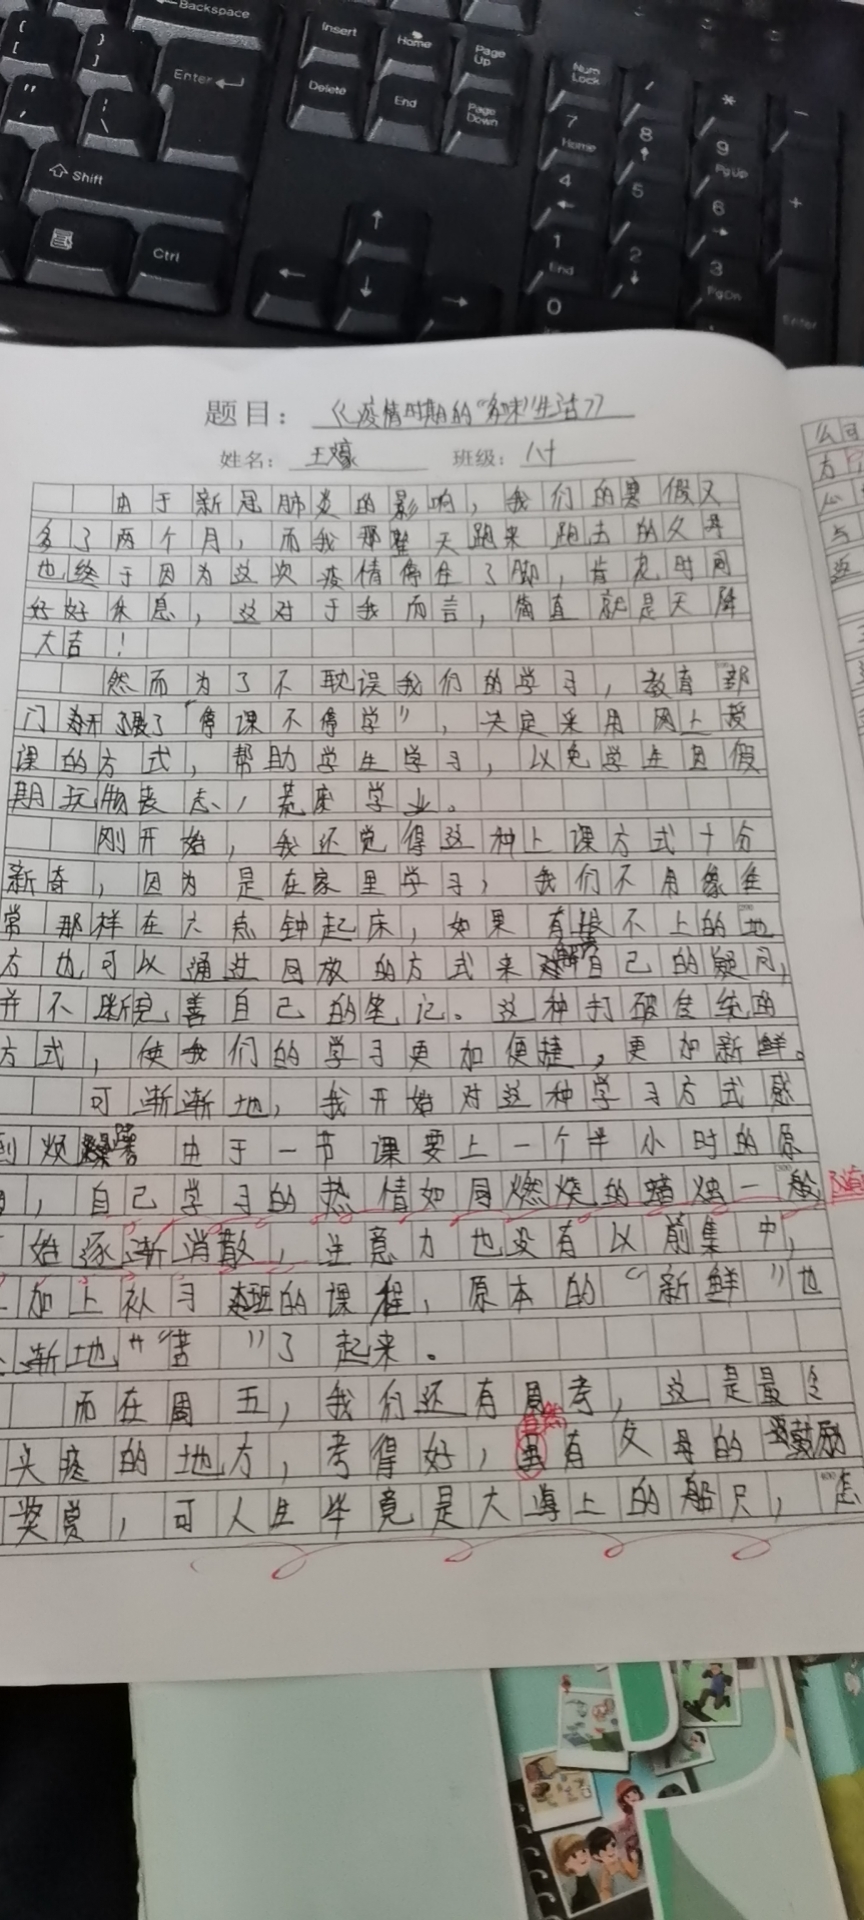 Backspace
Insert
Home
Page Up
Num Lock
/
*
-
Enter
Delete
End
Page Down
7
Home
8
9
PgUp
+
Shift
4
5
6
Ctrl
1
End
2
3
PgDn
Enter
0
题目：《疫情时期的“多味”生活》
姓名： 王 班级： 八十
由于新冠肺炎的影响，我们的寒假又
多了两个月，而我那整天跑来跑去的父母
也终于因为这次疫情停住了脚，肯花时间
好好休息，这对于我而言，简直就是天降
大吉！
然而为了不耽误我们的学习，教育部
门开展了“停课不停学”，决定采用网上授
课的方式，帮助学生学习，以免学生因假
期玩物丧志，荒废学业。
刚开始，我还觉得这种上课方式十分
新奇，因为是在家里学习，我们不用像往
常那样在六点钟起床，如果有跟不上的地
方也可以通过回放的方式来解答自己的疑问，
并不断完善自己的笔记。这种打破传统的
方式，使我们的学习更加便捷，更加新鲜。
可渐渐地，我开始对这种学习方式感
到烦躁 由于一节课要上一个半小时的原
，自己学习的热情如同燃烧的蜡烛一般
始逐渐消散，注意力也没有以前集中，
加上补习班的课程，原本的“新鲜”也
渐地“苦”了起来。
而在周五，我们还有周考，这是最令
头疼的地方，考得好，虽有父母的鼓励
虽然
奖赏，可人生毕竟是大海上的船只，怎